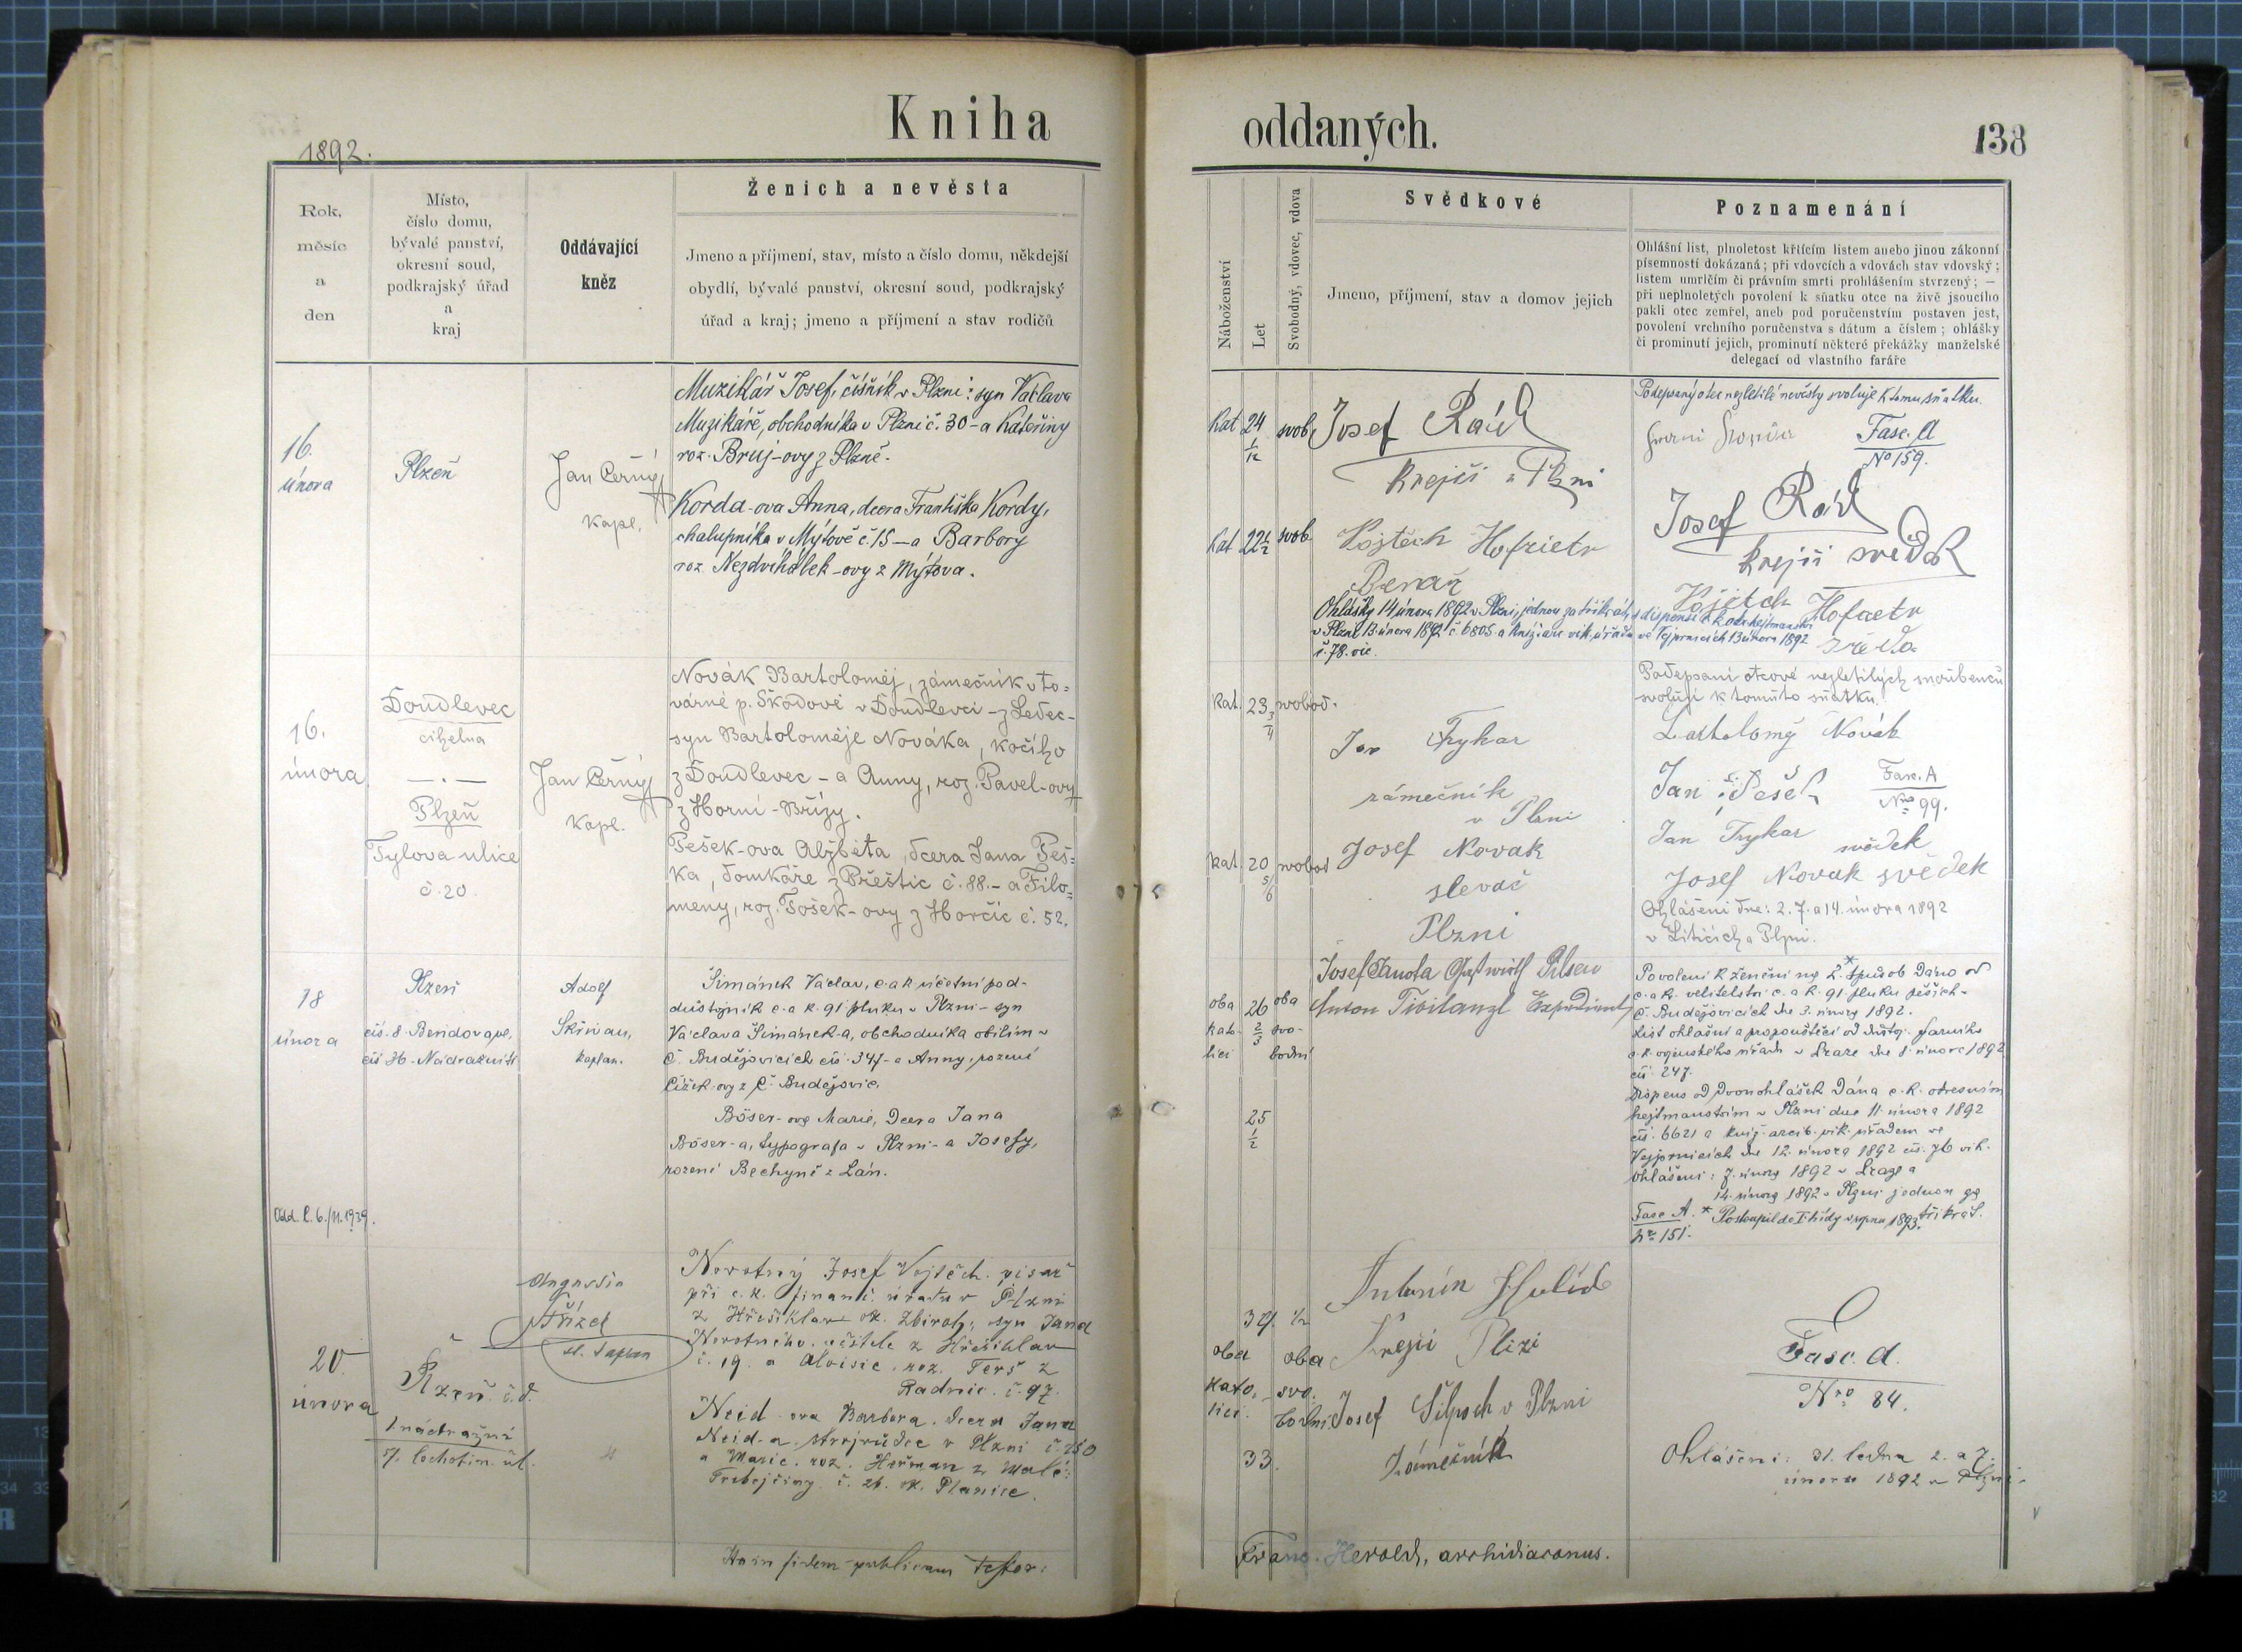 Kniha
oddaných.
138
1892.
Rok,
měsíc
a
den
Místo,
číslo domu,
bývalé panství,
okresní soud,
podkrajský úřad
a
kraj
Oddávající
kněz
Ženich a nevěsta
Jmeno a příjmení, stav, místo a číslo domu, někdejší
obydlí, bývalé panství, okresní soud, podkrajský
úřad a kraj; jmeno a příjmení a stav rodičů
Náboženství
Let
Svobodný, vdovec, vdova
Svědkové
Jmeno, příjmení, stav a domov jejich
Poznamenání
Ohlášní list, plnoletost křticím listem anebo jinou zákonní
písemností dokázaná; při vdovcích a vdovách stav vdovský;
listem umrlčím či právním smrti prohlášením stvrzený; —
při neplnoletých povolení k sňatku otce na živě jsoucího
pakli otec zemřel, aneb pod poručenstvím postaven jest,
povolení vrchního poručenstva s dátum a číslem; ohlášky
či prominutí jejich, prominutí některé překážky manželské
delegací od vlastního faráře
16.
února
Plzeň
Jan Černý
kapl.
Muzikář Josef, číšník v Plzni: syn Václava
Muzikáře, obchodníka v Plzni č. 30 - a Kateřiny
roz. Bruj-ovy z Plzně.
Korda-ova Anna, dcera Františka Kordy,
chalupníka v Mýtově č. 15 - a Barbory
roz. Nezdvihálek-ovy z Mýtova.
kat 24 svob.
1/12
kat 22 1/2 svob
Josef Rád
krejčí v Plzni
Vojtěch Hofrietr
Ohlášky 14 února 1892 v Plzni, jednou za třikrát, s dispensí c.k. okr. hejtmanství
v Plzni 13. února 1892 č. 6805. a knížecí arc. vik. úřadu ve Vejprnicích 13 února 1892
č. 78. vic.
Podepsaný otec nezletilé nevěsty svoluje k tomu sňatku.
Fasc. A
No 159.
Josef Rád
krejčí svědek
Vojtěch Hofrietr
svědek
16.
února
Doudlevec
cihelna
— . —
Plzeň
Tylova ulice
č. 20.
Jan Černý
kapl.
Novák Bartoloměj, zámečník v to=
várně p. Škodově v Doudlevci - z Ledec -
syn Bartoloměje Nováka, kočího
z Doudlevec - a Anny, roz. Pavel-ovy
z Horní-Břízy.
Pešek-ova Alžběta, dcera Jana Peš=
ka, domkáře z Přeštic č. 88. - a Filo=
meny, roz. Tošek-ovy z Horčic č. 52.
kat. 23 svobod.
3/4
kat. 20 svobod
5/6
Jan Trykar
zámečník
v Plzni
Josef Novak
slevač
Plzni
Podepsaní otcové nezletilých snoubenců
svolují k tomuto sňatku.
Bartoloměj Novák
Jan Pešek
Fasc. A
No 99.
Jan Trykar svědek
Josef Novak svědek
Ohlášeni dne: 2. 7. a 14. února 1892
v Liticích a Plzni.
18
února
Plzeň
čís. 8. Bendova ul.
čís 36. Nádražní tř.
Adolf
Skřivan,
kaplan.
Šimánek Václav, c. a k. účetní pod-
důstojník c. a k. 91 pluku v Plzni - syn
Václava Šimánek-a, obchodníka obilím v
Č. Budějovicích čís. 347 - a Anny, rozené
Čížek-ovy z Č. Budějovic.
Böser-ova Marie, dcera Jana
Böser-a, typografa v Plzni - a Josefy,
rozené Bechyně z Lán.
Odd. l. 6./11.1939.
oba
kato-
líci
26
2/3
25
1/2
oba
svo-
bodní
Josef Janota Gastwirth Pilsen
Anton Expedient
Povolení k ženění na 2. *způsob dáno od
c. a k. velitelství c. a k. 91. pluku pěších -
Č. Budějovicích dne 3. února 1892.
List ohlašní a propouštěcí od důstoj. farního
c. k. vojenského úřadu v Praze dne 8. února 1892
čís. 247.
Dispens od dvou ohlášek dána c. k. okresním
hejtmanstvím v Plzni dne 11. února 1892
čís. 6621 a kníž. arcib. vik. úřadem ve
Vejprnicích dne 12. února 1892 čís. 76 vik.
Ohlášeni: 7. února 1892 v Praze a
14. února 1892 v Plzni jednou za
třikrát.
Fasc A.
No 151.
* Postoupil do I třídy v srpnu 1893.
20
února
Plzeň. č. d.
1 nádražní
57. lochotín. ul.
Augustin
Křížek
Novotný Josef Vojtěch. písař
při c. k. finanč. úřadu v Plzni
z Hřešihlav ok. Zbiroh; syn Jana
Novotného. učitele z Hřešihlav
č. 19. a Aloisie. roz. Terš z
Radnic. č. 97.
Neid-ova Barbora. dcera Jana
Neid-a. strojvůdce v Plzni č. 250
a Marie. roz. Heřman z Malé
Třebejčiny č. 26. ok. Planice.
oba
kato-
líci.
34. 1/2
33.
oba
svo.
bodni
Antonín Hulid
Krejčí Plzni
Josef v Plzni
Zámečník
Fasc. A.
Nro 84.
Ohlášeni: 31. ledna 2. a 7.
února 1892 v Plzni.
Ita in fidem publicam testor:
Franc. Herold, archidiaconus.